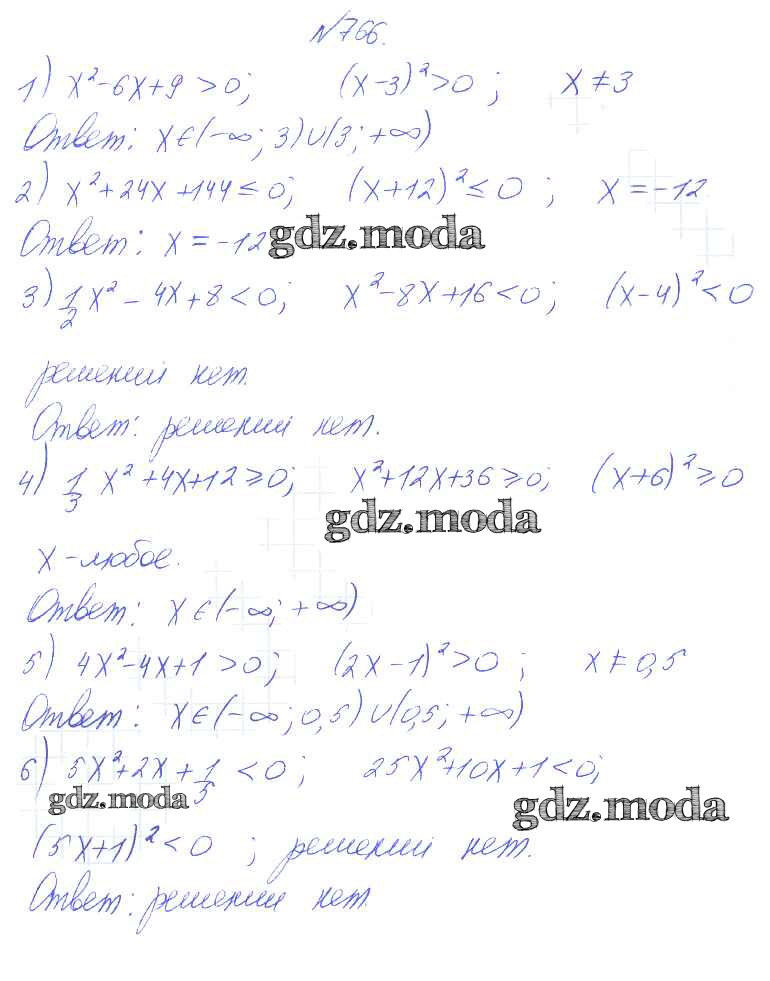 №766.
1) x²-6x+9 >0; (x-3)²>0 ; x≠3
Ответ: x∈(-∞; 3)∪(3; +∞)
2) x²+24x+144≤0; (x+12)²≤0 ; x=-12
Ответ: x=-12
gdz.moda
3) 1/2 x²-4x+8<0; x²-8x+16<0; (x-4)²<0
решений нет.
Ответ: решений нет.
4) 1/3 x²+4x+12≥0; x²+12x+36≥0; (x+6)²≥0
gdz.moda
x-любое.
Ответ: x∈(-∞; +∞)
5) 4x²-4x+1>0; (2x-1)²>0 ; x≠0,5
Ответ: x∈(-∞; 0,5)∪(0,5; +∞)
6) 5x²+2x+1/5 <0; 25x²+10x+1<0;
gdz.moda gdz.moda
(5x+1)²<0 ; решений нет.
Ответ: решений нет.